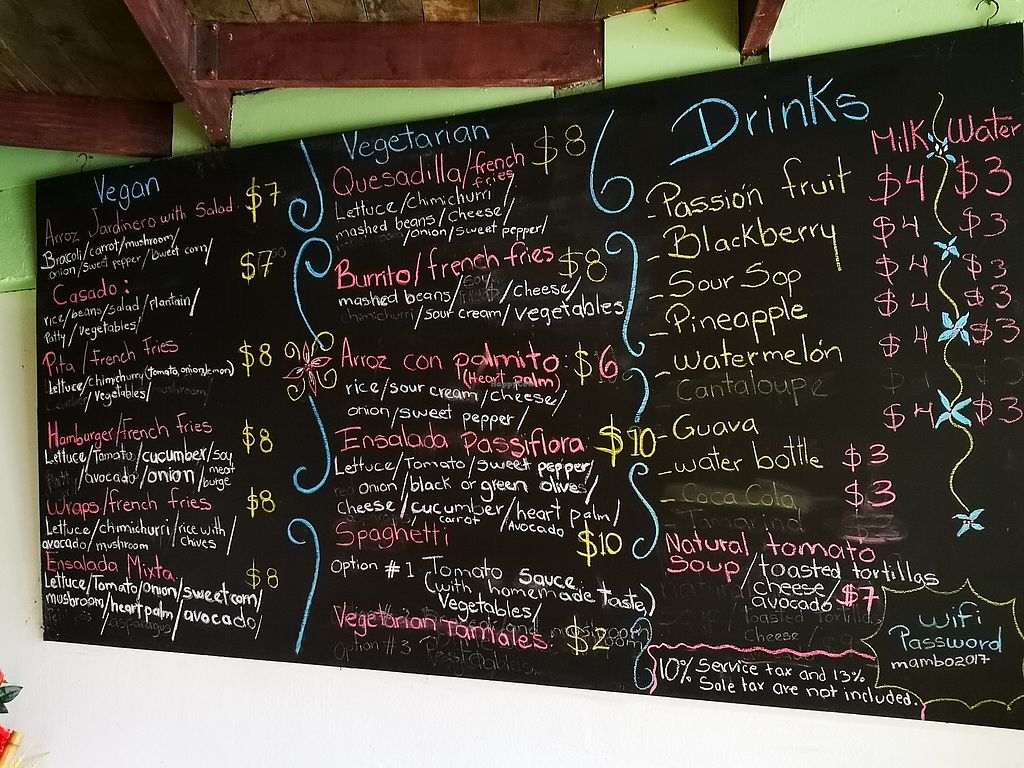 Vegan
Arroz Jardinero with Salad $7
Brocoli/carrot/mushroom/
onion/sweet pepper/sweet corn/
Casado: $7
rice/beans/salad/plantain/
Patty/vegetables/
Pita/french fries $8
Lettuce/chimichurry(tomato,onion,lemon)
/vegetables/mushroom/
Hamburger/french fries $8
Lettuce/Tomato/cucumber/soy
/avocado/onion/meat
burge
Wraps/french fries $8
Lettuce/chimichurri/rice with
avocado/mushroom chives/
Ensalada Mixta $8
Lettuce/Tomato/onion/sweet corn/
mushroom/heart palm/avocado/
asparagus
Vegetarian
Quesadilla/french $8
fries
Lettuce/Chimichurri/
mashed beans/cheese/
/onion/sweet pepper/
Burrito/french fries $8
mashed beans/ /cheese/
chimichurri/sour cream/vegetables
Arroz con palmito: $6
(Heart palm)
rice/sour cream/cheese/
onion/sweet pepper/
Ensalada Passiflora $10
Lettuce/Tomato/sweet pepper/
onion/black or green olives
cheese/cucumber/heart palm/
carrot Avocado
Spaghetti $10
Option #1 Tomato sauce
(with homemade taste)
Vegetables/
Vegetarian Tamales: $2
Option #3
Drinks
Milk Water
-Passion fruit $4 $3
-Blackberry $4 $3
-Sour Sop $4 $3
-Pineapple $4 $3
-watermelón $4 $3
Cantaloupe
-Guava $4 $3
-water bottle $3
-Coca Cola $3
-Tamarind
Natural tomato
Soup/toasted tortillas
cheese
avocado $7
Cheese
10% Service tax and 13%
Sale tax are not included.
Wifi
Password
mambo2017